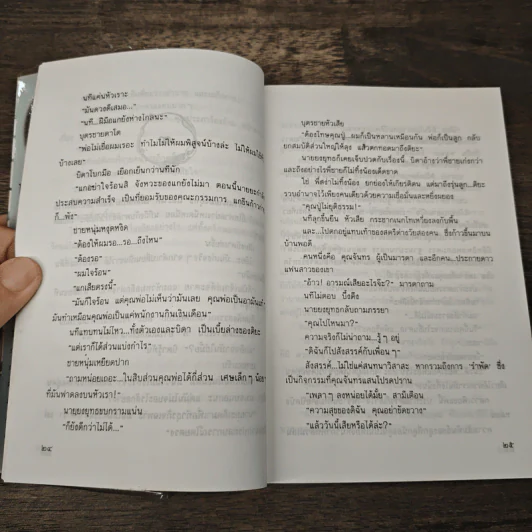 นทีแค่นหัวเราะ
"มันดวงดีเสมอ..."
"นที...ฝีมือแกยังห่างไกลนะ"
บุตรชายตาโต
"พ่อไม่เชื่อผมเรอะ ทำไมไม่ให้ผมพิสูจน์บ้างล่ะ ไม่ให้ผม
บ้างเลย"
บิดาโบกมือ เยือกเย็นกว่านที่นัก
"แกอย่าใจร้อนสิ จังหวะของแกยังไม่มา ตอนนี้นายยะ
ประสบความสำเร็จ เป็นที่ยอมรับของคณะกรรมการ แกขืน
ก็...พัง"
ชายหนุ่มหงุดหงิด
"ต้องให้ผมรอ...รอ...ถึงไหน"
"ต้องรอ"
"ผมใจร้อน"
"แกเสียตรงนี้"
"มันก็ใจร้อน แต่คุณพ่อไม่เห็นว่ามันเลย คุณพ่อเป็นอามัน
มันทำเหมือนคุณพ่อเป็นแค่พนักงานกินเงินเดือน"
นทีแทบทนไม่ไหว...ทั้งตัวเองและบิดา เป็นเบี้ยล่างของติยะ
"แต่เราก็ได้ส่วนแบ่งกำไร"
ชายหนุ่มเหยียดปาก
"ถามหน่อยเถอะ...ในสิบส่วนคุณพ่อได้กี่ส่วน เศษเล็กๆ น้อย
ที่มันฟาดลงบนหัวเรา !"
นายยงยุทธขบกรามแน่น
"ก็ยังดีกว่าไม่ได้..."
๒๔
บุตรชายหัวเสีย
"ต้องโทษคุณปู่...ผมก็เป็นหลานเหมือนกัน พ่อก็เป็นลูก กลับ
ยกสมบัติส่วนใหญ่ให้ลุง แล้วตกทอดมาถึงติยะ"
นายยงยุทธก็เคยเจ็บปวดกับเรื่องนี้ บิดาอ้างว่าพี่ชายเก่งกว่า
และถึงอย่างไรพี่ชายก็ไม่ทิ้งน้องเด็ดขาด
ใช่ พี่ดาไม่ทิ้งน้อง ยกย่องให้เกียรติตน แต่มาถึงรุ่นลูก...ติยะ
รวบอำนาจไว้เพียงคนเดียวด้วยความเชื่อมั่นและหยิ่งผยอง
"คุณปู่ไม่ยุติธรรม"
นทีลุกขึ้นยืน หัวเสีย กระชากเนกไทเหวี่ยงลงกับพื้น
และ...ไปตกอยู่แทบเท้าของสตรีต่างวัยสองคน ซึ่งก้าวขึ้นมาบน
บ้านพอดี
คนหนึ่งคือ คุณจันทร ผู้เป็นมารดา และอีกคน...ประกายดาว
แฟนสาวของเขา
"อ้าว! อารมณ์เสียอะไรจ๊ะ?" มารดาถาม
นทีไม่ตอบ บึ้งตึง
นายยงยุทธกลับถามภรรยา
"คุณไปไหนมา?"
ความจริงก็ไม่น่าถาม...รู้ๆ อยู่
"ดิฉันก็ไปสังสรรค์กับเพื่อนๆ"
สังสรรค์...ไม่ใช่แค่สนทนาวิสาสะ หากรวมถึงการ 'รำพัด' ซึ่ง
เป็นกิจกรรมที่คุณจันทรแสนโปรดปราน
"เพลาๆ ลงหน่อยได้มั้ย" สามีเตือน
"ความสุขของดิฉัน คุณอย่าขัดขวาง"
"แล้ววันนี้เสียหรือได้ล่ะ?"
๒๕